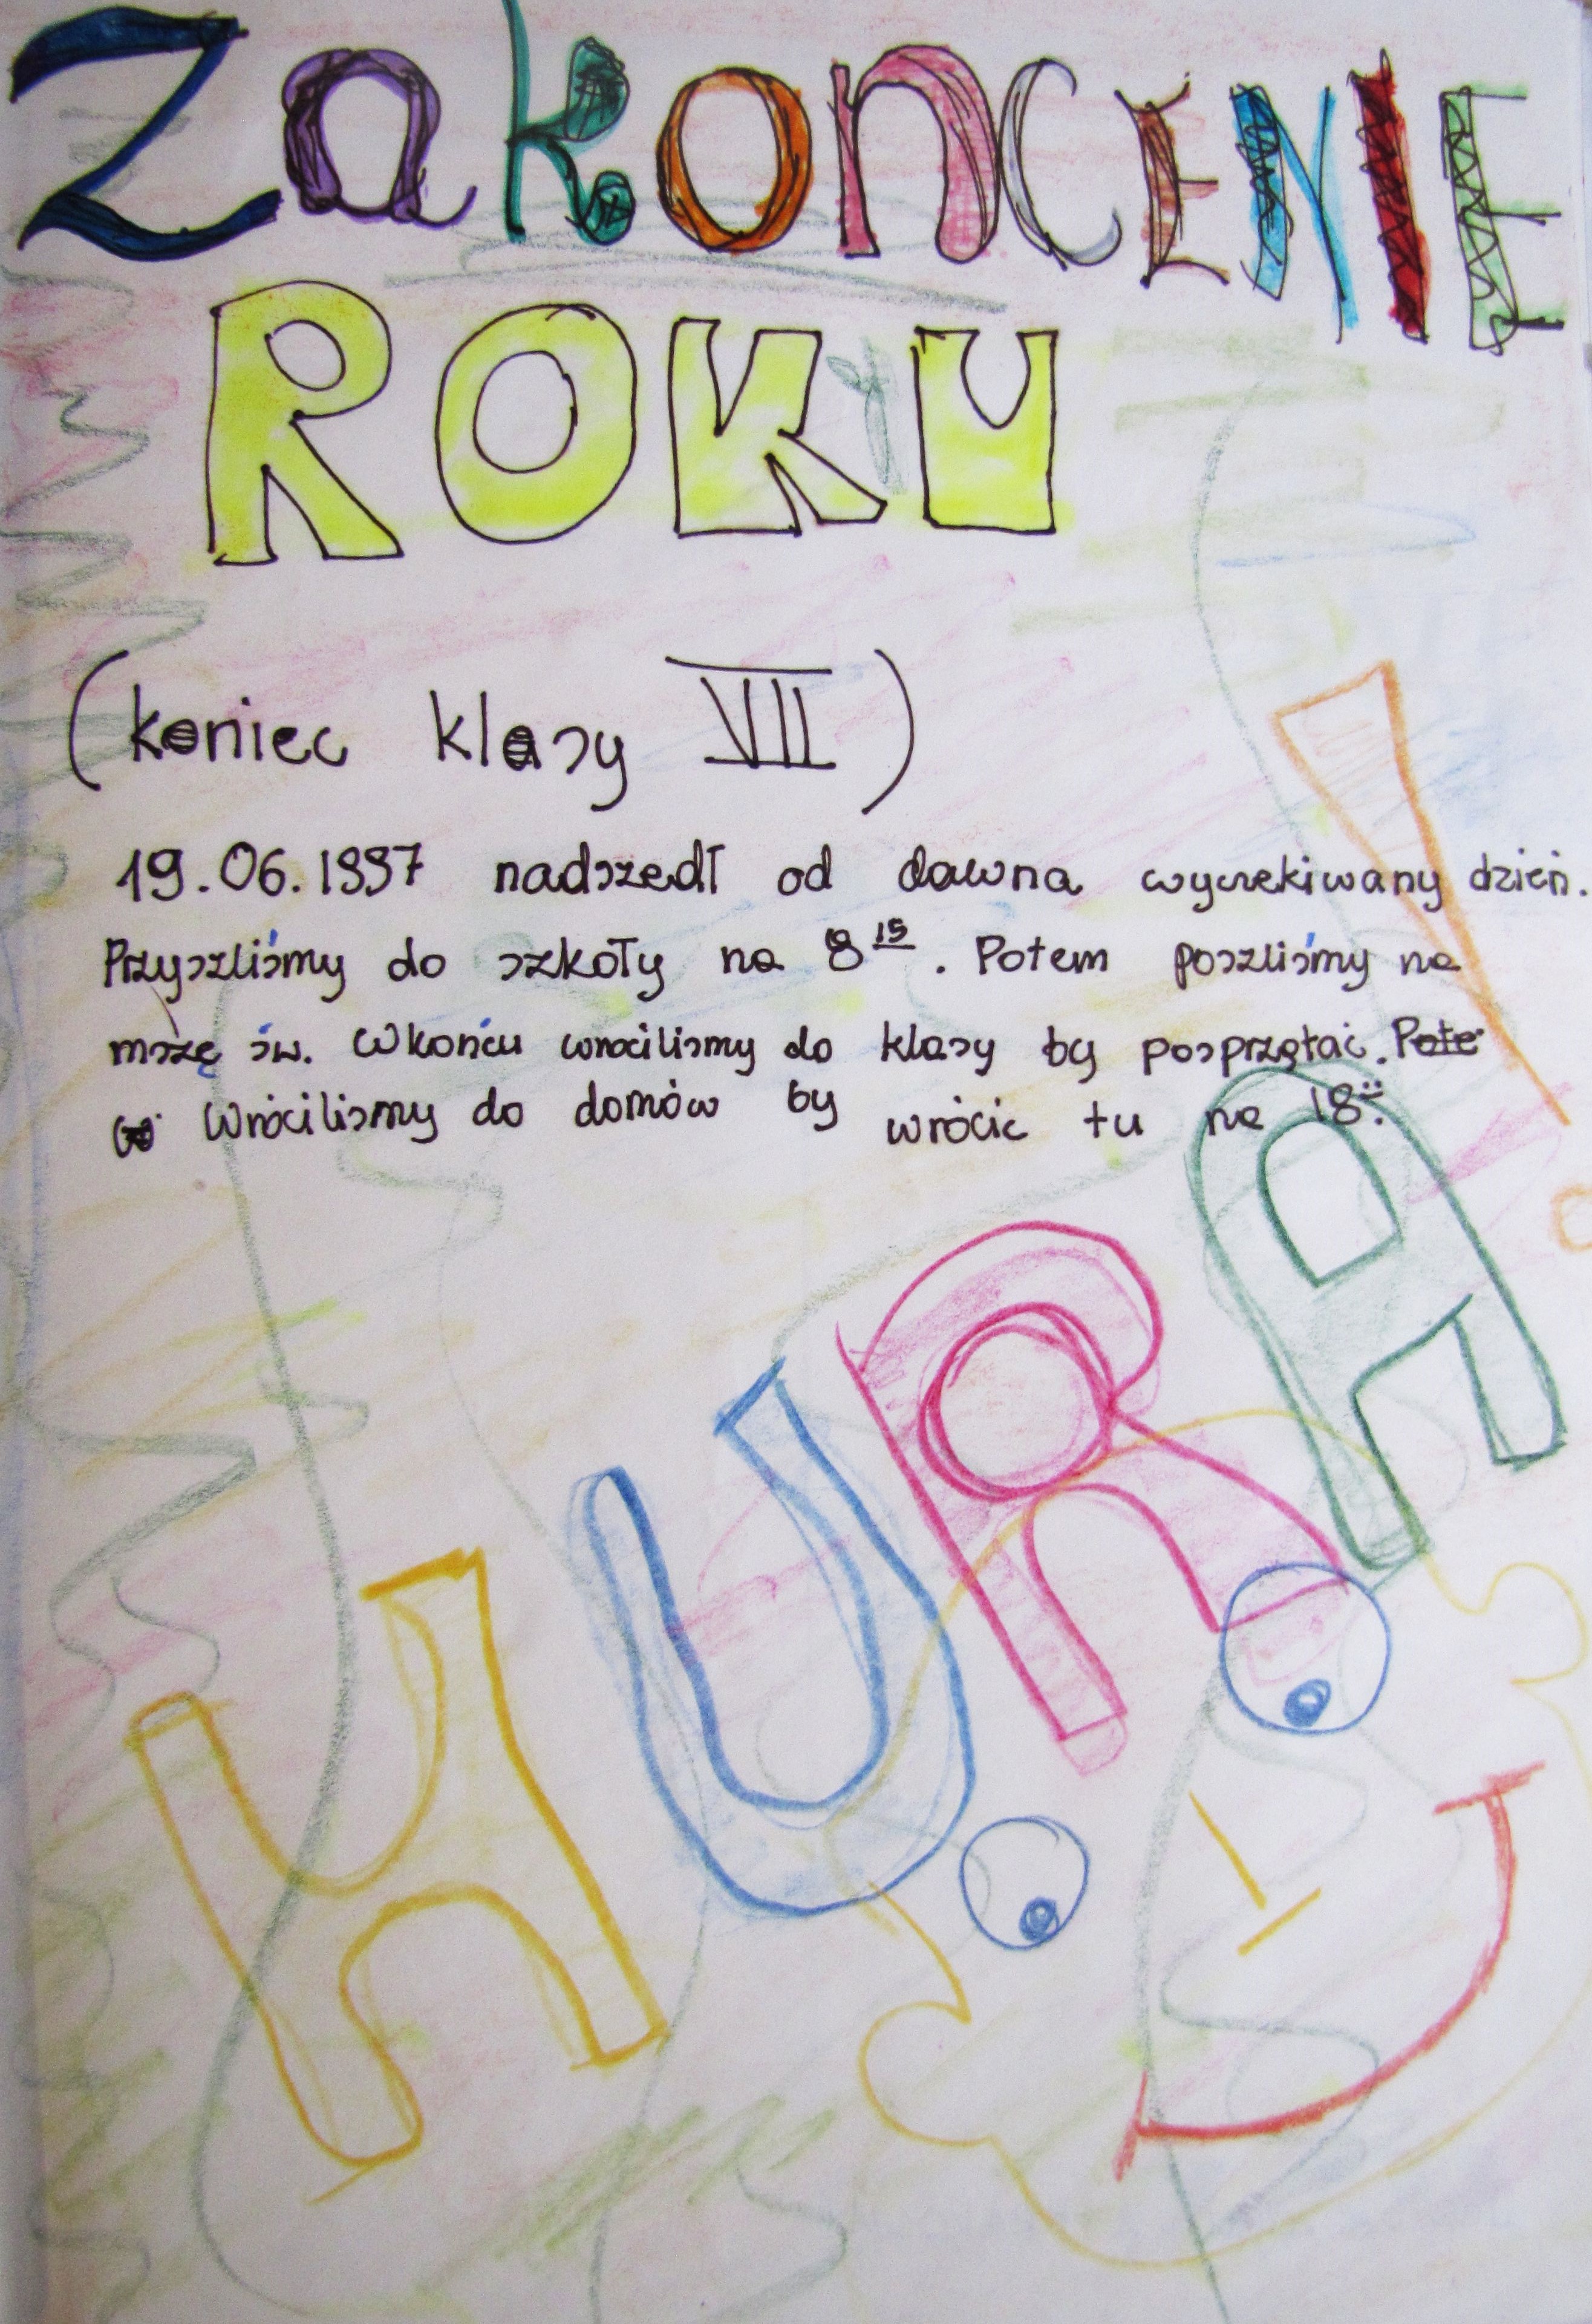 ZakonCENIE
ROKU
(koniec klasy VII)
19.06.1997 nadszedł od dawna wyczekiwany dzień.
Przyszliśmy do szkoły na 8¹⁵. Potem poszliśmy na
mszę św. Wkońcu wrociliśmy do klasy by posprzątać. Pote
Wróciliśmy do domów by wrócic tu na 18
HURA!